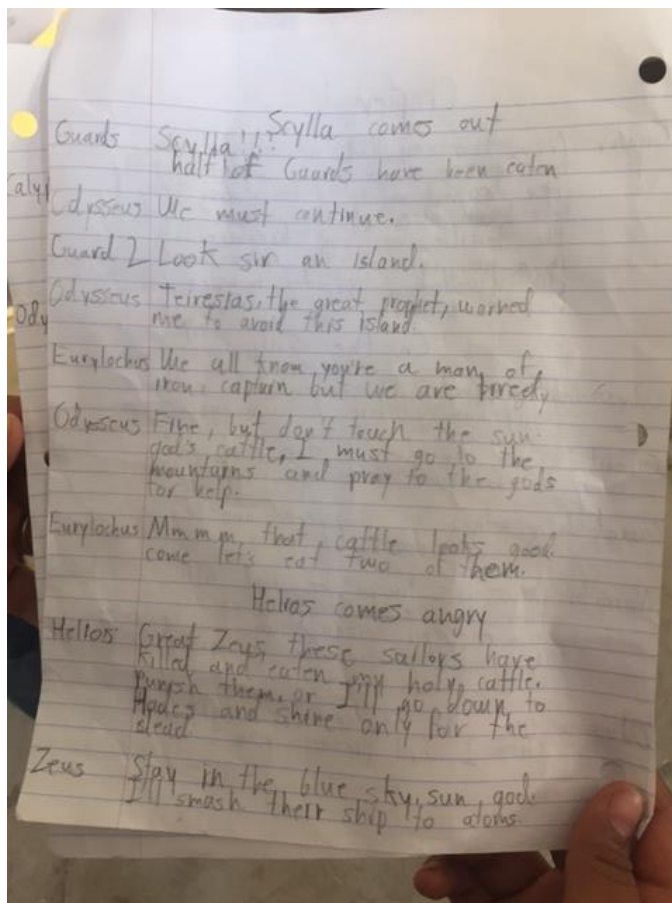 Scylla comes out
Guards Scylla!!!
half of Guards have been eaten
Odysseus We must continue.
Guard 2 Look sir an island.
Odysseus Teiresias, the great prophet, warned
me to avoid this island.
Eurylochus We all know you're a man of
iron captain but we are
Odysseus Fine, but don't touch the sun
god's cattle, I must go to the
mountains and pray to the gods
for help.
Eurylochus Mmmm, that cattle looks good
come let's eat two of them.
Helios comes angry
Helios Great Zeus, these sailors have
killed and eaten my holy cattle.
Punish them, or I'll go down to
Hades and shine only for the
Zeus Stay in the blue sky, sun god.
I'll smash their ship to atoms.
Caly
Ody